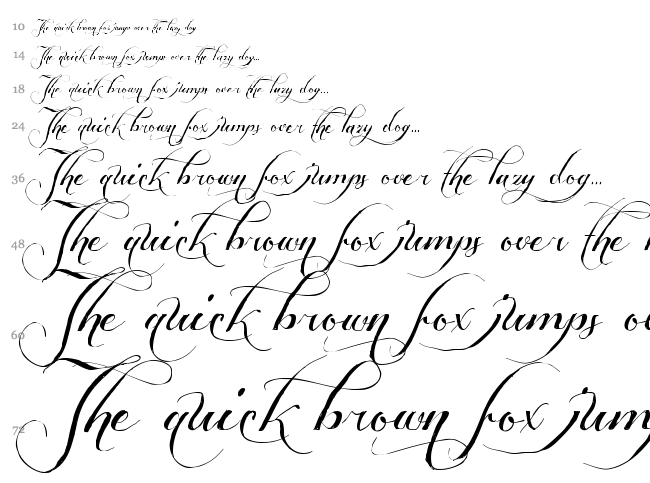 10 The quick brown fox jumps over the lazy dog
14 The quick brown fox jumps over the lazy dog...
18 The quick brown fox jumps over the lazy dog...
24 The quick brown fox jumps over the lazy dog...
36 The quick brown fox jumps over the lazy dog...
48 The quick brown fox jumps over the l
60 The quick brown fox jumps ov
72 The quick brown fox jum